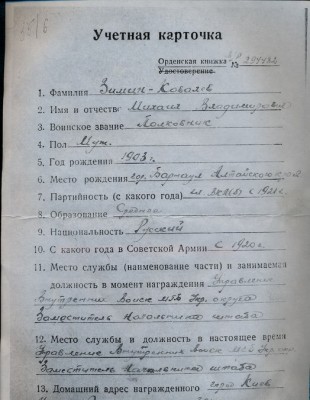 Учетная карточка
Орденская книжка № 294422
Удостоверение
1. Фамилия Зимин-Ковалев
2. Имя и отчество Михаил Владимирович
3. Воинское звание Полковник
4. Пол Муж.
5. Год рождения 1903 г.
6. Место рождения гор. Барнаул Алтайского края
7. Партийность (с какого года) с 1921 г.
8. Образование Среднее
9. Национальность Русский
10. С какого года в Советской Армии С 1920 г.
11. Место службы (наименование части) и занимаемая
должность в момент награждения Управление
Внутренних Войск МГБ Укр. округа
Заместитель Начальника штаба
12. Место службы и должность в настоящее время
Управление Внутренних Войск МГБ Укр.
Заместитель Начальника штаба
13. Домашний адрес награжденного город Киев